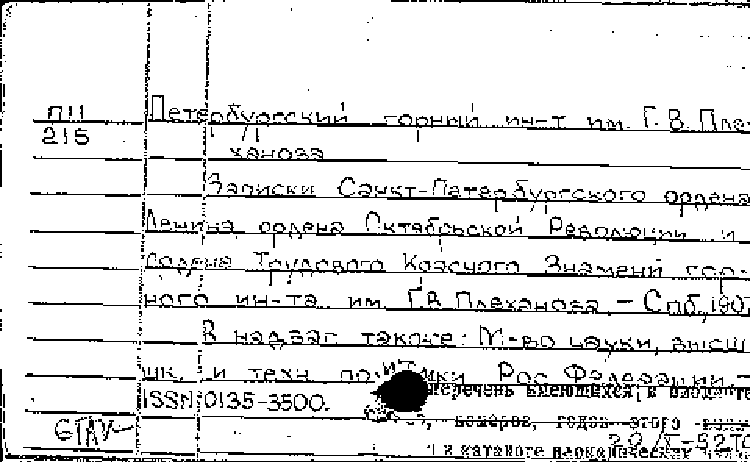 П11 Петербургский горный ин-т им. Г.В. Пле-
215
ханова
Записки Санкт-Петербургского ордена
Ленина ордена Октябрьской Революции и
ордена Трудового Красного Знамени гор-
ного ин-та им. Г.В. Плеханова. - Спб, 1907
В надзаг. также: М-во науки, высш
шк. и техн. политики Рос. Федерации -
ISSN 0135-3500.
перечень имеющихся в библиоте
номеров, годов этого
в каталоге периодических